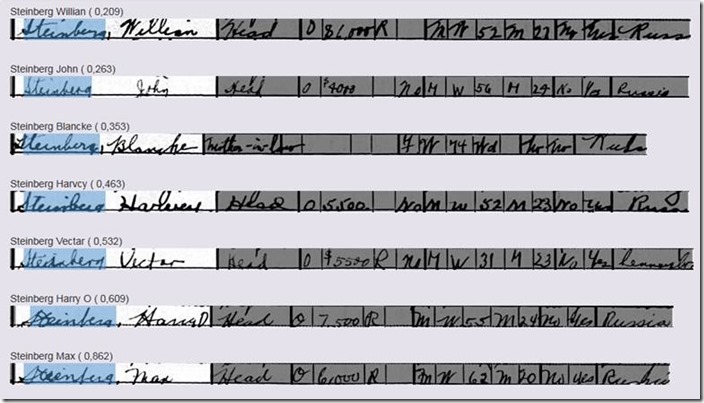 Steinberg Willian ( 0,209)
Steinberg, William Head O $6,000 R M W 52 M 27 No Yes Russ
Steinberg John ( 0,263)
Steinberg John Head O $4000 No M W 56 M 24 No Yes Russia
Steinberg Blancke ( 0,353)
Steinberg, Blanche Mother-in-law F W 74 Wd No No
Steinberg Harvcy ( 0,463)
Steinberg Head O 5,500 No M W 52 M 23 No Yes
Steinberg Vectar ( 0,532)
Steinberg Victar Head O $5500 R No M W 31 M 23 No Yes
Steinberg Harry O ( 0,609)
Steinberg, Harry O Head O 7,500 R M W 55 M 24 No Yes Russia
Steinberg Max ( 0,862)
Steinberg, Max Head O 6,000 R M W 62 M 20 No Yes